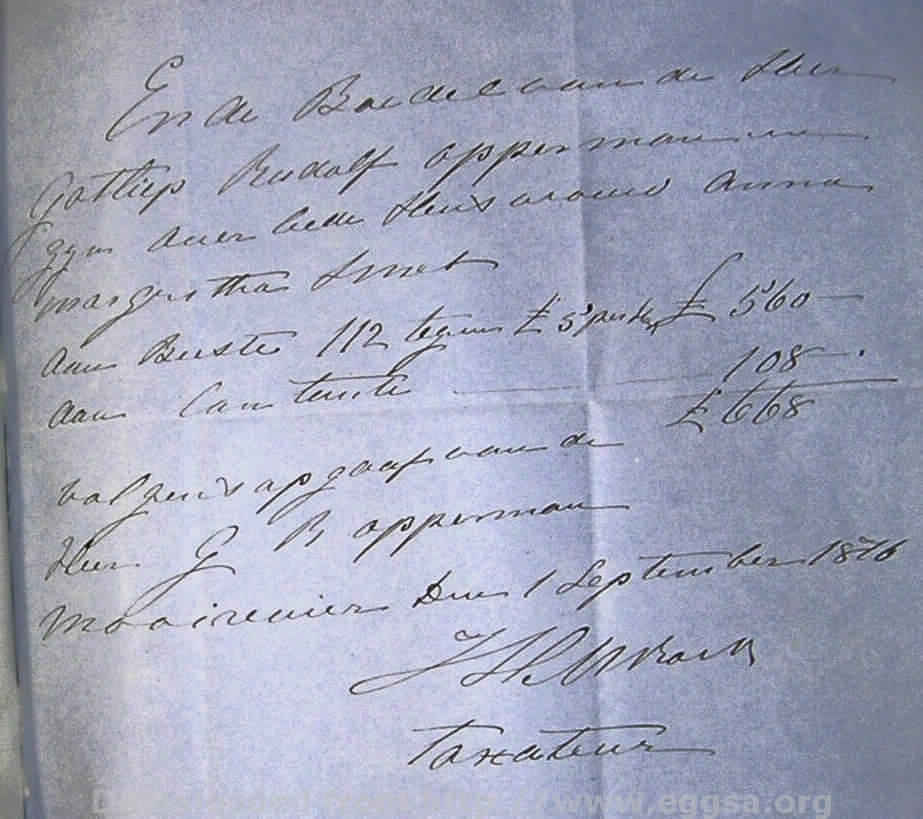 En de Boedel van de Heer
Gotliep Rudolf opperman en
zyn over lede Huisvrouw Anna
margretha Smet
aan Beeste 112 tegen £ 5 per £ 560 —
aan Contente — 108 — .
£ 668
volgens opgaaf van de
Heer G R opperman
Mooirevier Den 1 September 1876
Taxateur
www.eggsa.org